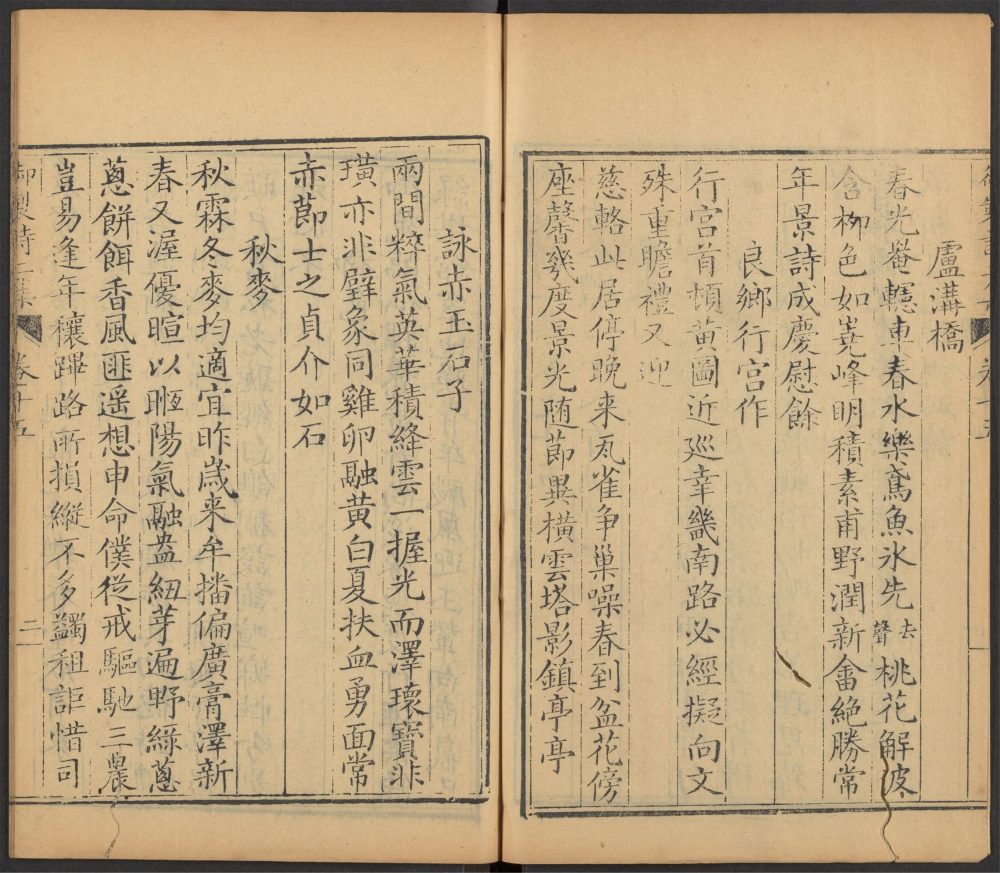 盧溝橋
春光菴轋車春水樂鳶魚氷先去聲桃花解冰
含栁色如嶤峰明積素甫野潤新畬絶勝常
年景詩成慶慰餘
良鄉行宫作
行宫首頓黄圖近巡幸畿南路必經擬向文
殊重瞻禮又迎
慈輅此居停晚来瓦雀争巢噪春到盆花傍
座馨㡬度景光随節異横雲塔影鎮亭亭
詠赤玉石子
兩間粹氣英華積絳雲一握光而澤瓌寶非
璜亦非璧象同雞卵融黄白夏扶血勇面常
赤節士之貞介如石
秋麥
秋霖冬麥均適宜昨歲来牟播偏廣膏澤新
春又渥優暄以暅陽氣融盎紐芽遍野綠蔥
蔥餅餌香風匪遥想申命僕從戒驅馳三農
豈易逢年穰蹕路所損縱不多蠲租詎惜司
御製詩二集 卷十五 二